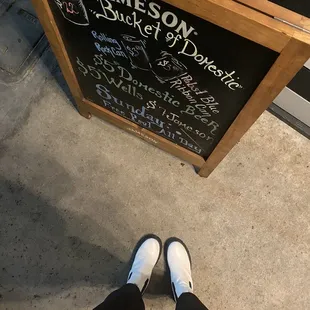 JAMESON
Bucket of Domestic
Rolling
Rock
Pabst Blue
Ribbon
$5 Domestic Beer
$5 Wells $ Jameson
Sundays
Free Pool All Day